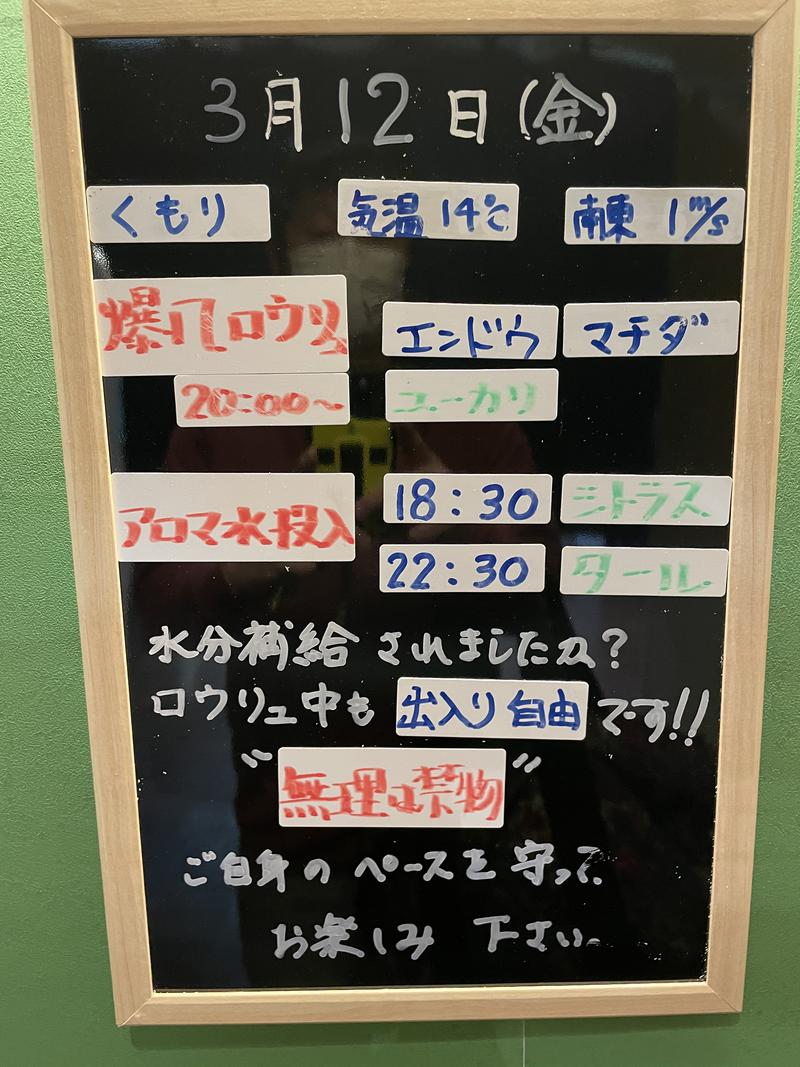 3月12日(金)
くもり 気温 14℃ 南東 1m/s
爆風ロウリュ エンドウ マチダ
20:00〜 ユーカリ
アロマ水投入 18:30 シトラス
22:30 タール
水分補給 されましたか?
ロウリュ中も 出入り自由 です!!
"無理は禁物"
ご自身の ペースを 守って
お楽しみ 下さい